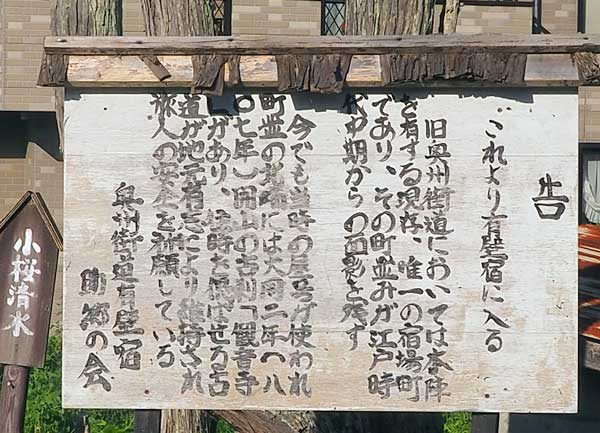 告
これより有壁宿に入る
旧奥州街道においては本陣
を有する現存、唯一の宿場町
であり、その町並みが江戸時
代中期からの面影を残す
今でも当時の屋号が使われ
町並の北端には大同二年(八
〇七年)開山の古刹「観音寺
」があり、往時を偲ばせる古
道が地元有志により維持され
旅人の安全を祈願している
奥州街道有壁宿
助郷の会
小桜清水